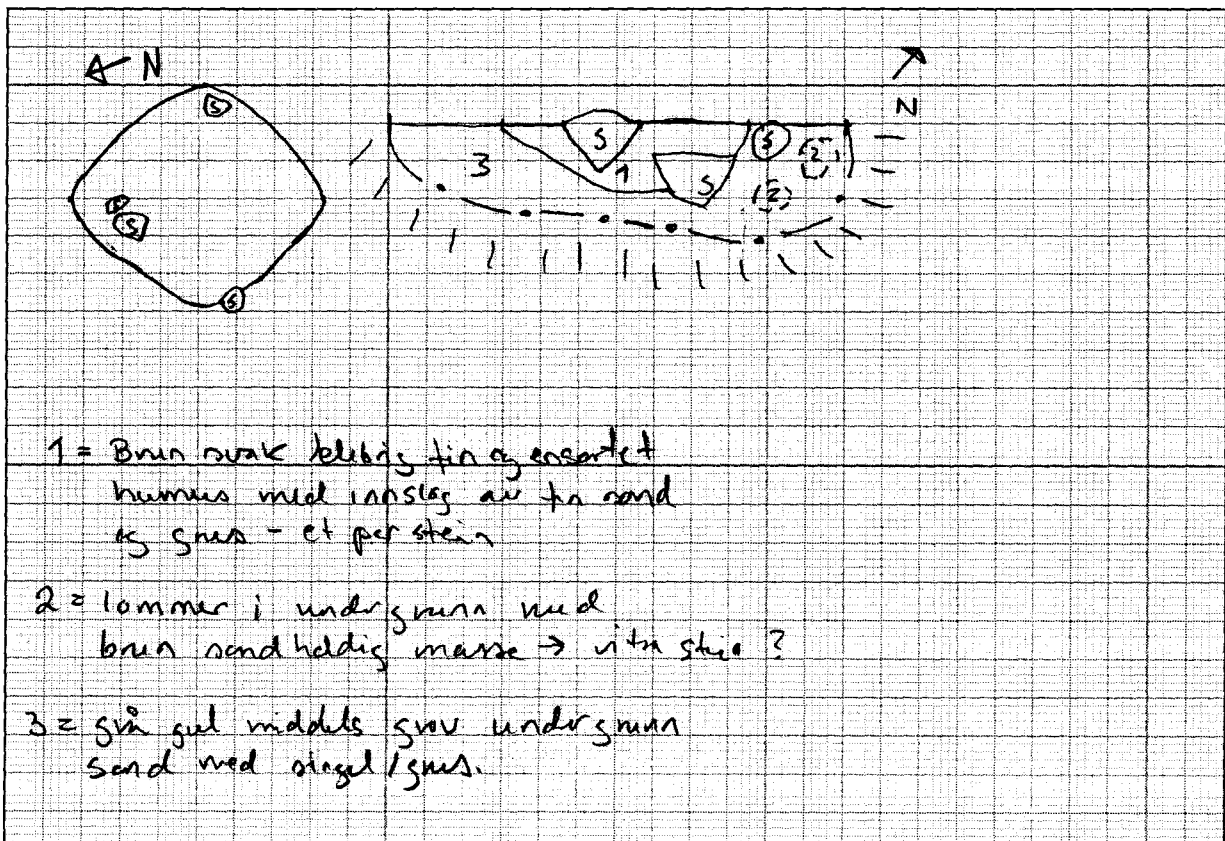 N
S
S
S
N
S
3
1
S
S
2
2
1 = Brun svak fin og ensartet
humus med innslag av fin sand
og grus - et par stein
2 = lommer i undergrunn med
brun sandholdig masse →
3 = grå gul middels grov undergrunn
sand med singel/grus.